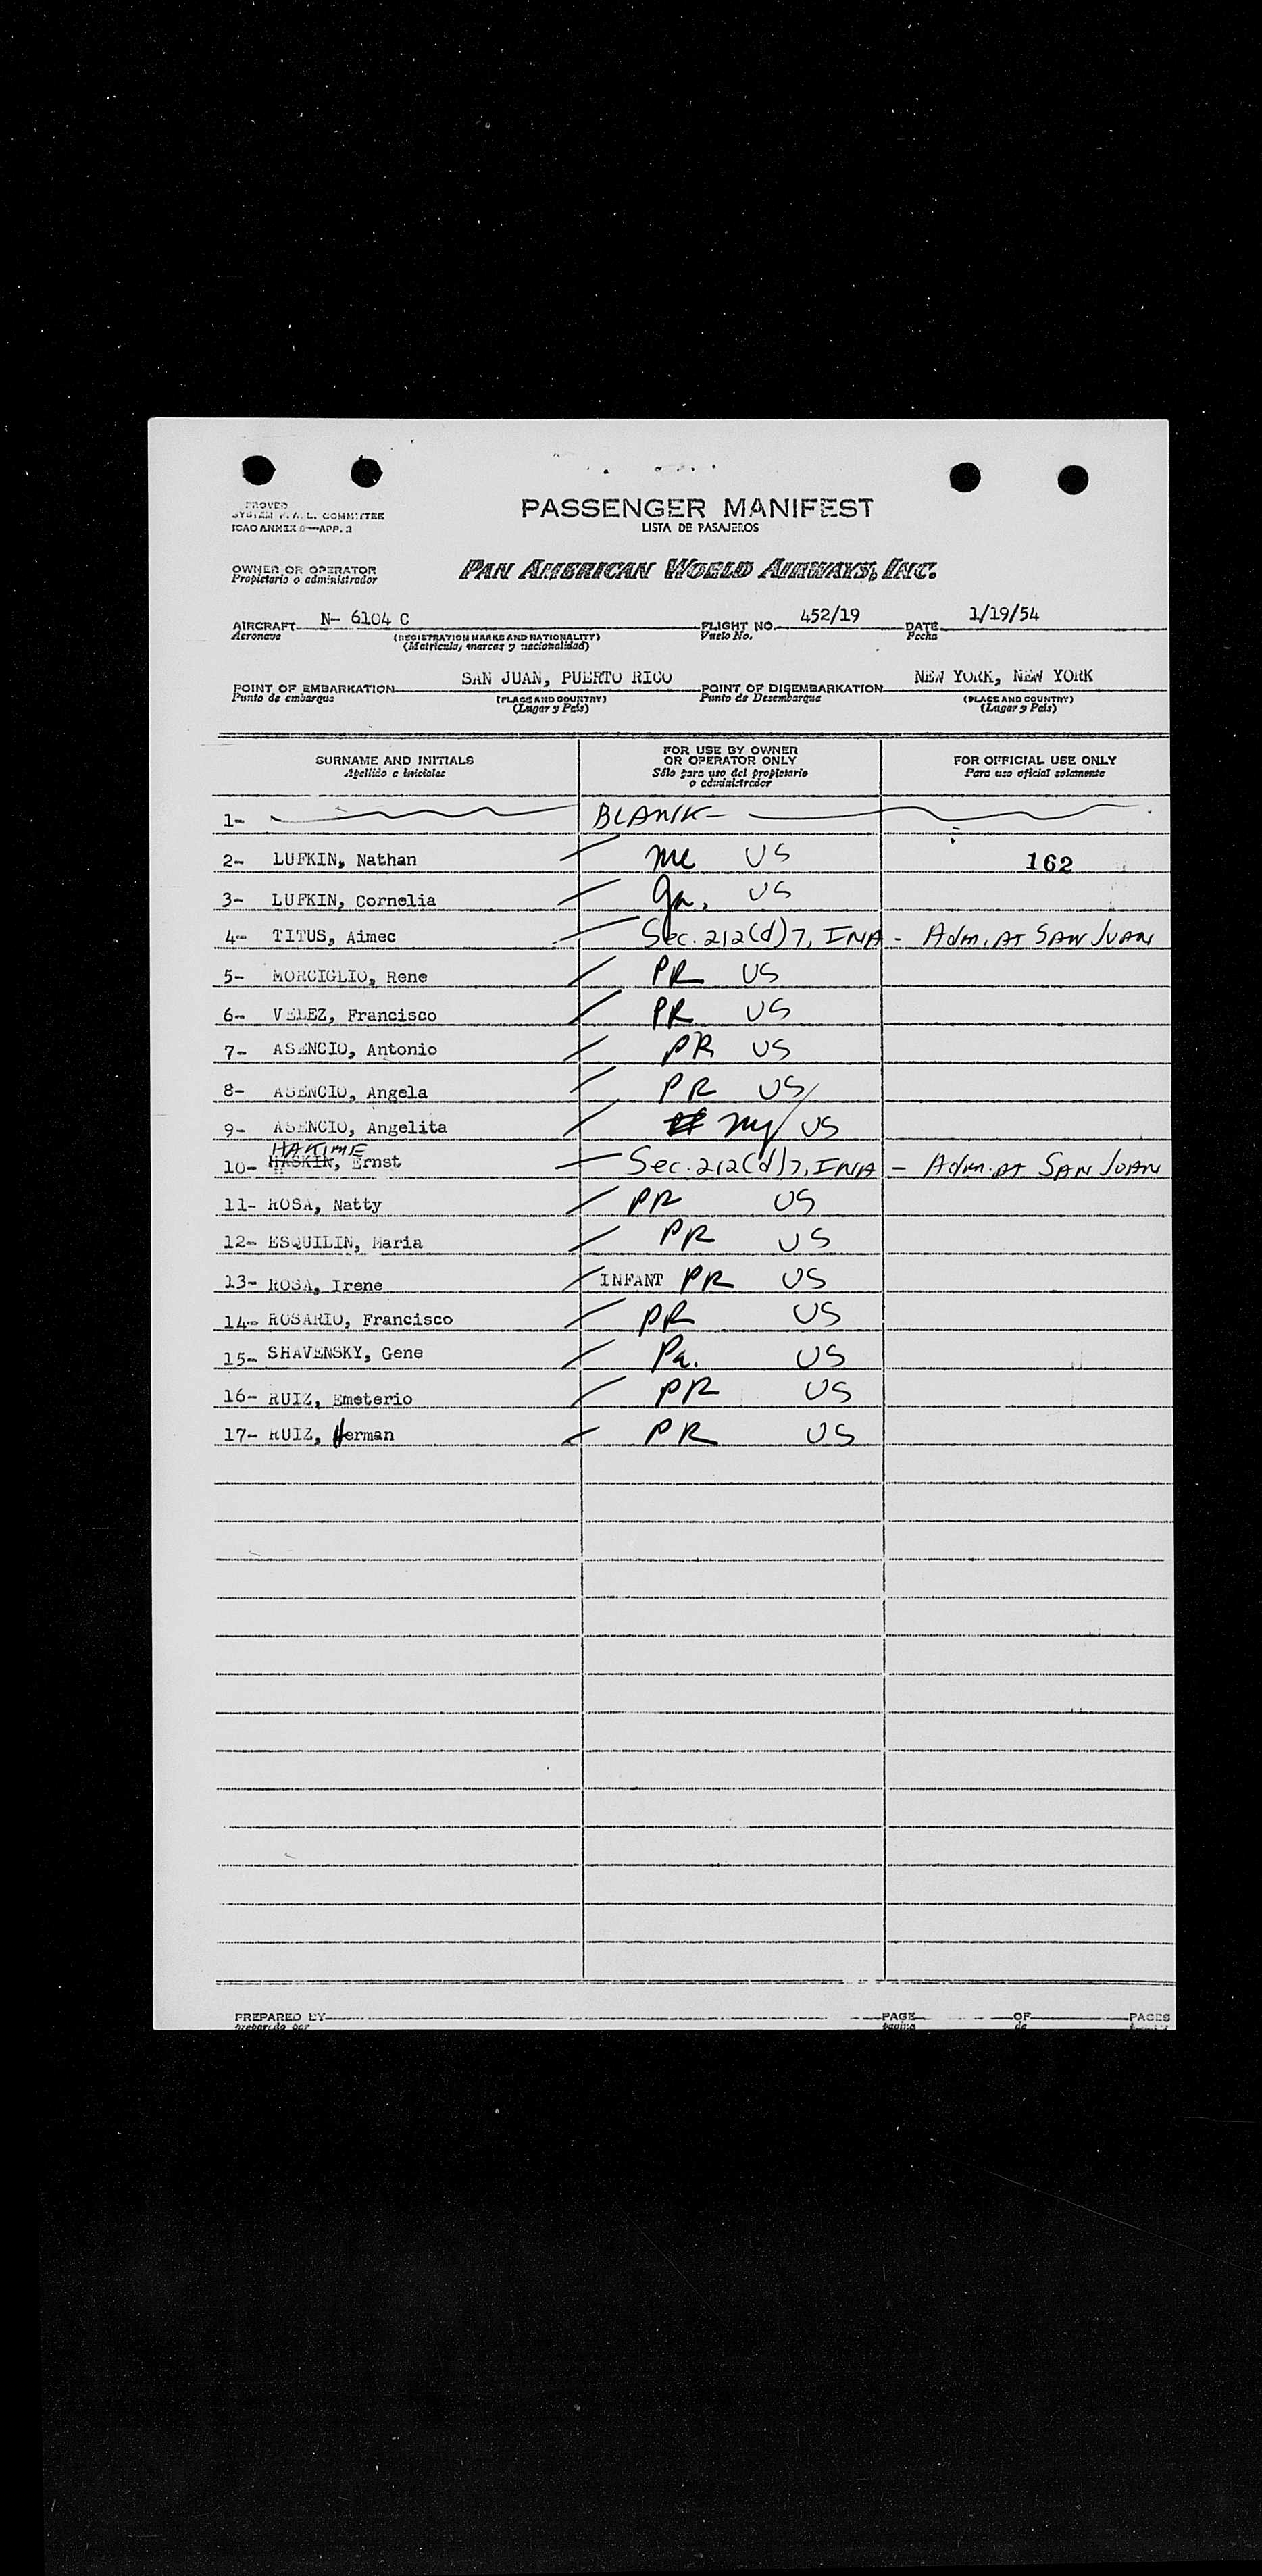 PROVED
SYSTEM F.A.L. COMMITTEE
ICAO ANNEX 9—APP. 3
PASSENGER MANIFEST
LISTA DE PASAJEROS
OWNER OR OPERATOR
Propietario o administrador
PAN AMERICAN WORLD AIRWAYS, INC.
AIRCRAFT N- 6104 C FLIGHT NO. 452/19 DATE 1/19/54
Aeronave (REGISTRATION MARKS AND NATIONALITY) Vuelo No. Fecha
(Matricula, marcas y nacionalidad)
POINT OF EMBARKATION SAN JUAN, PUERTO RICO POINT OF DISEMBARKATION NEW YORK, NEW YORK
Punto de embarque (PLACE AND COUNTRY) Punto de Desembarque (PLACE AND COUNTRY)
(Lugar y Pais) (Lugar y Pais)
SURNAME AND INITIALS FOR USE BY OWNER OR OPERATOR ONLY FOR OFFICIAL USE ONLY
Apellido e iniciales Sólo para uso del propietario o administrador Para uso oficial solamente
1- BLANK-
2- LUFKIN, Nathan Me US 162
3- LUFKIN, Cornelia Ga. US
4- TITUS, Aimec Sec. 212(d)7, INA - Adm. AT SAN JUAN
5- MORCIGLIO, Rene PR US
6- VELEZ, Francisco PR US
7- ASENCIO, Antonio PR US
8- ASENCIO, Angela PR US
9- ASENCIO, Angelita NY US
HAKIME
10- HASKIN, Ernst Sec. 212(d)7, INA - Adm. AT SAN JUAN
11- ROSA, Natty PR US
12- ESQUILIN, Maria PR US
13- ROSA, Irene INFANT PR US
14- ROSARIO, Francisco PR US
15- SHAVENSKY, Gene Pa. US
16- RUIZ, Emeterio PR US
17- RUIZ, Herman PR US
PREPARED BY PAGE OF PAGES
preparado por pagina de